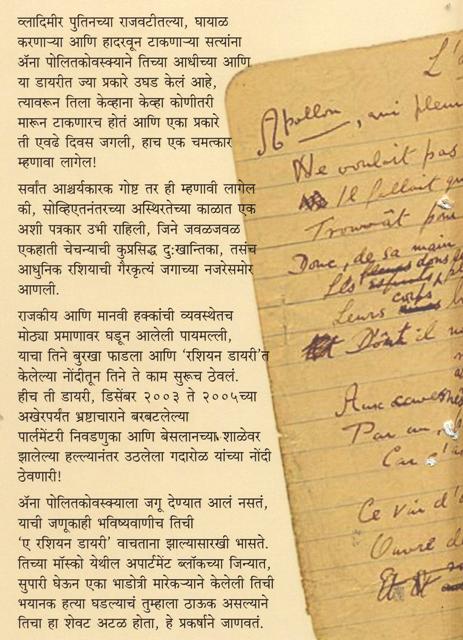 व्लादिमीर पुतिनच्या राजवटीतल्या, घायाळ
करणाऱ्या आणि हादरवून टाकणाऱ्या सत्यांना
ॲना पोलितकोवस्क्याने तिच्या आधीच्या आणि
या डायरीत ज्या प्रकारे उघड केलं आहे,
त्यावरून तिला केव्हाना केव्हा कोणीतरी
मारून टाकणारच होतं आणि एका प्रकारे
ती एवढे दिवस जगली, हाच एक चमत्कार
म्हणावा लागेल!
सर्वांत आश्चर्यकारक गोष्ट तर ही म्हणावी लागेल
की, सोव्हिएतनंतरच्या अस्थिरतेच्या काळात एक
अशी पत्रकार उभी राहिली, जिने जवळजवळ
एकहाती चेचन्याची कुप्रसिद्ध दुःखान्तिका, तसंच
आधुनिक रशियाची गैरकृत्यं जगाच्या नजरेसमोर
आणली.
राजकीय आणि मानवी हक्कांची व्यवस्थेतच
मोठ्या प्रमाणावर घडून आलेली पायमल्ली,
याचा तिने बुरखा फाडला आणि ‘रशियन डायरी’त
केलेल्या नोंदीतून तिने ते काम सुरूच ठेवलं.
हीच ती डायरी, डिसेंबर २००३ ते २००५च्या
अखेरपर्यंत भ्रष्टाचाराने बरबटलेल्या
पार्लमेंटरी निवडणुका आणि बेसलानच्या शाळेवर
झालेल्या हल्ल्यानंतर उठलेला गदारोळ यांच्या नोंदी
ठेवणारी!
ॲना पोलितकोवस्क्याला जगू देण्यात आलं नसतं,
याची जणूकाही भविष्यवाणीच तिची
‘ए रशियन डायरी’ वाचताना झाल्यासारखी भासते.
तिच्या मॉस्को येथील अपार्टमेंट ब्लॉकच्या जिन्यात,
सुपारी घेऊन एका भाडोत्री मारेकऱ्याने केलेली तिची
भयानक हत्या घडल्याचं तुम्हाला ठाऊक असल्याने
तिचा हा शेवट अटळ होता, हे प्रकर्षाने जाणवतं.
L'
Apollon, qui pleu
Ne voulait pas
Il fallait qu
Trouvât pour
Donc, de sa main
Leurs corps
Dont il n
Aux
Par un,
Car d'a
Ce vin d'
Ouvre de